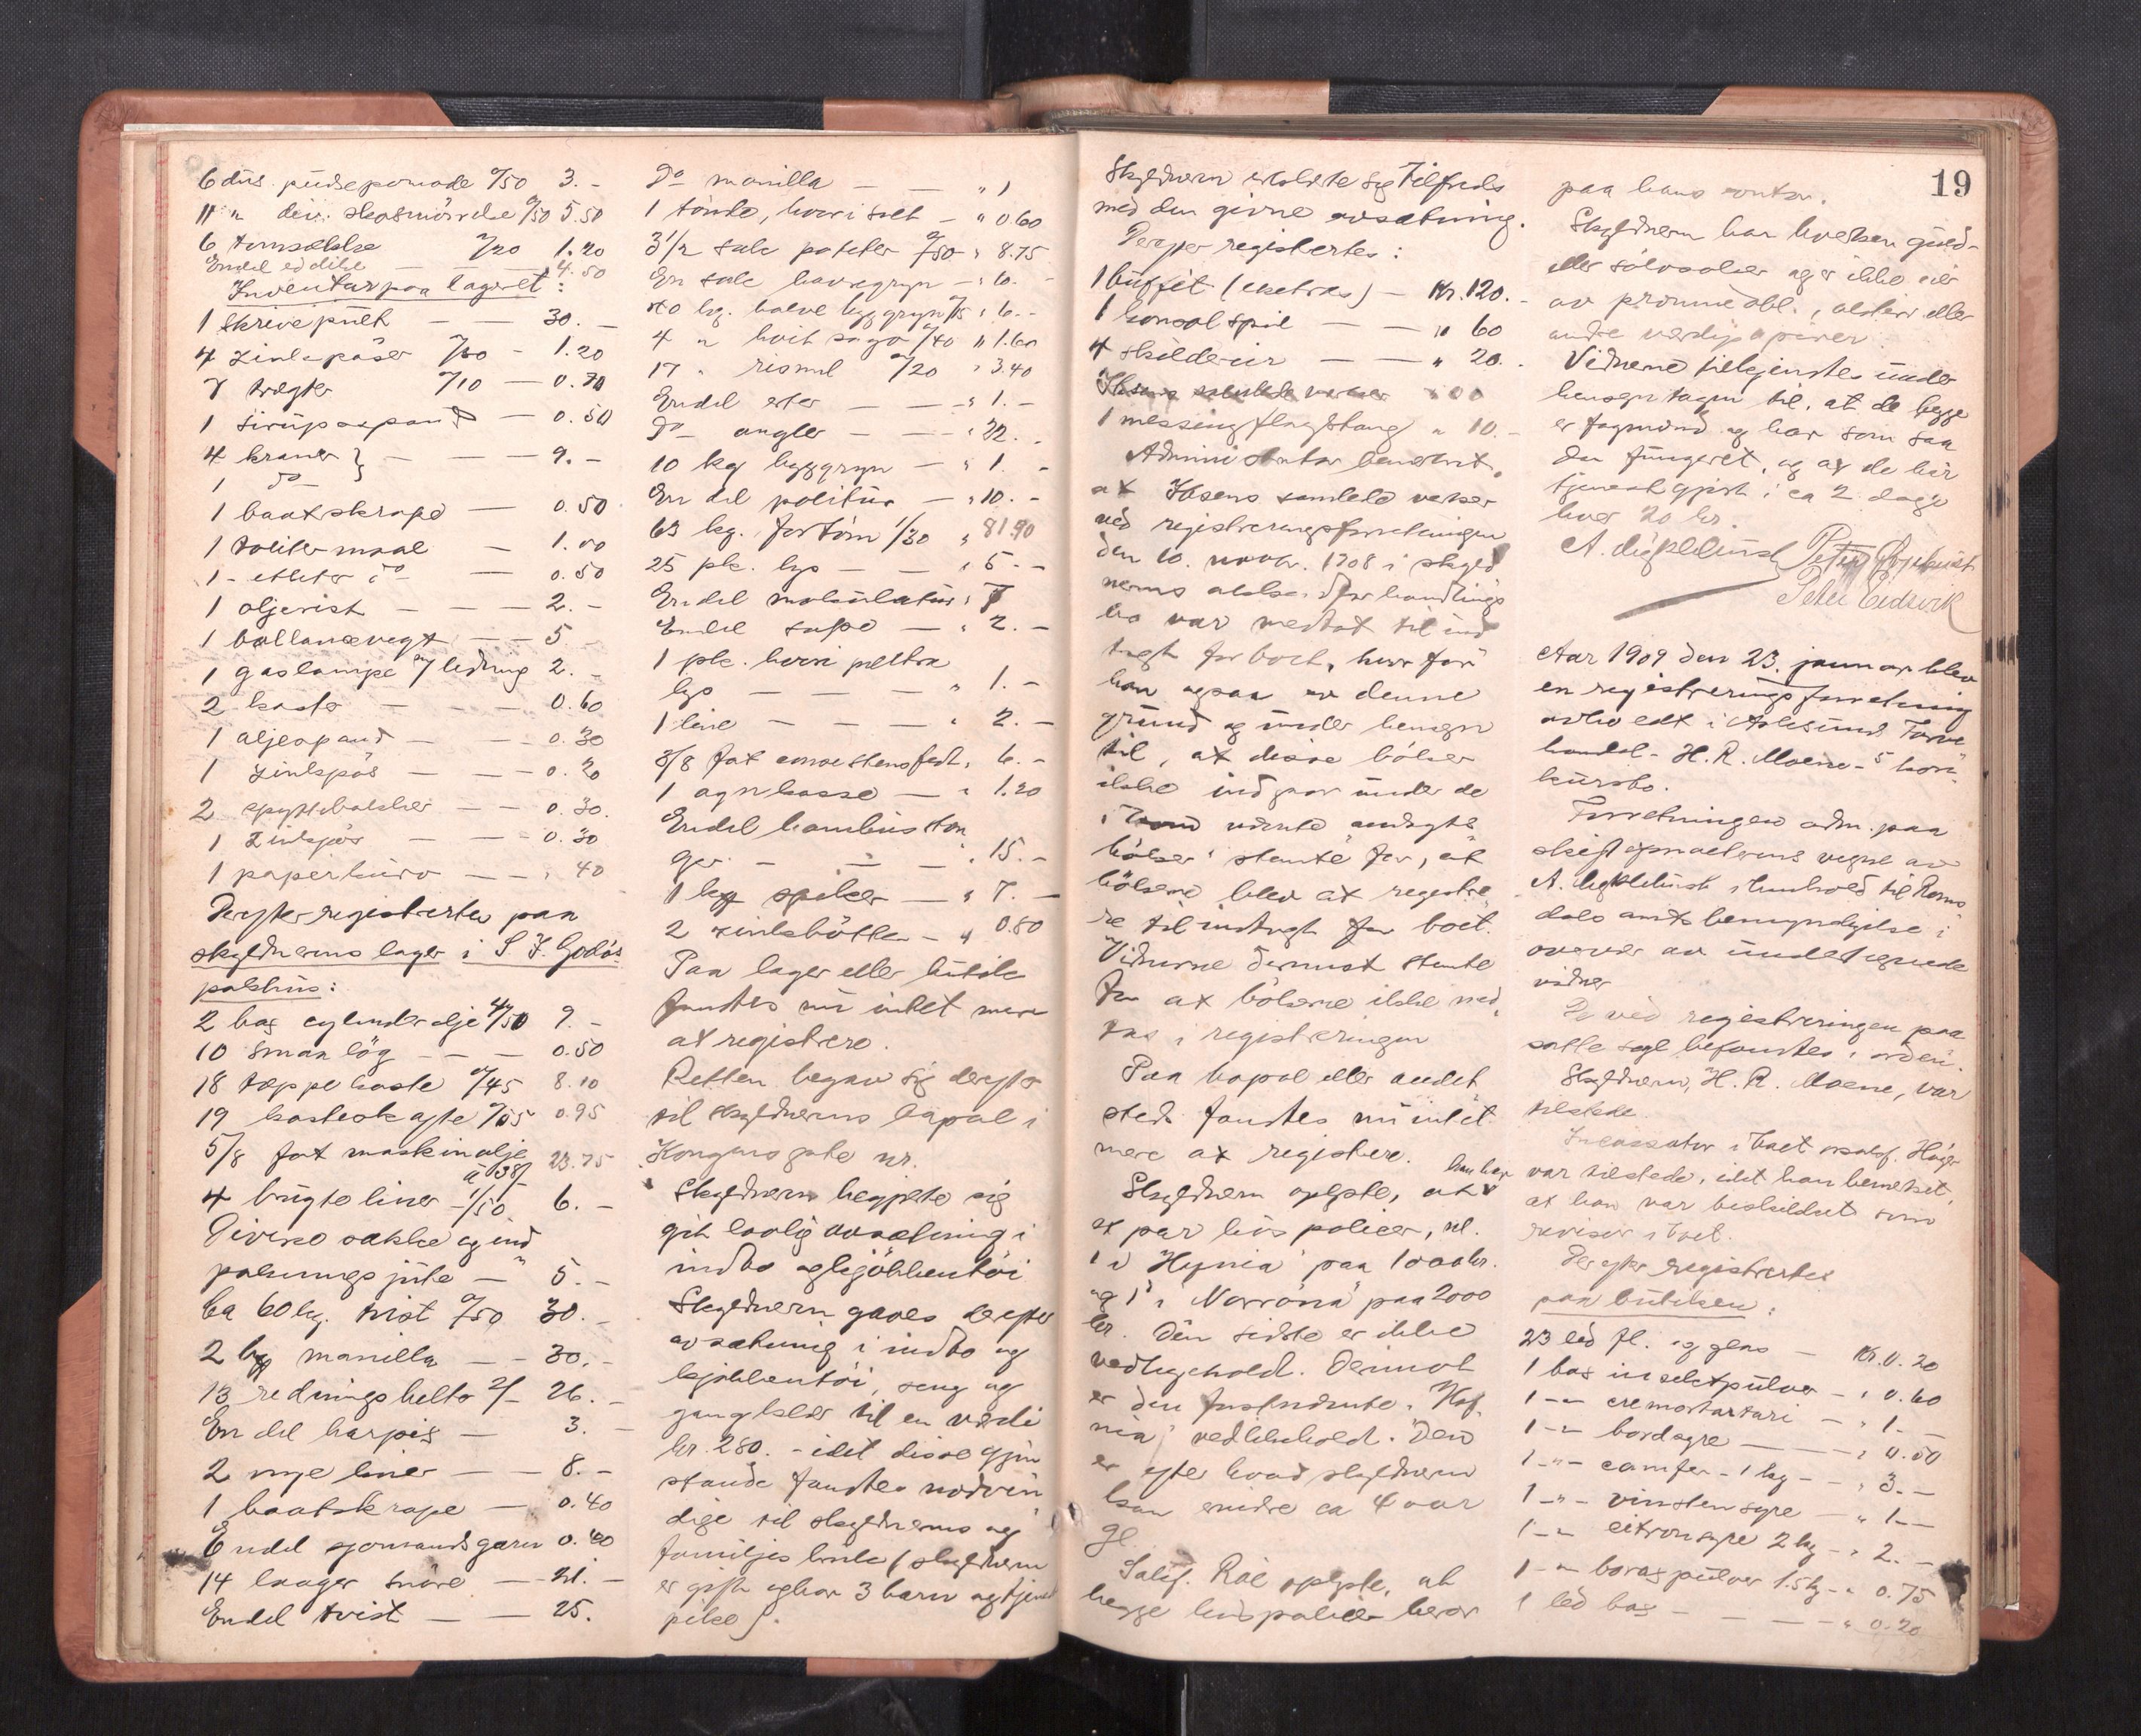 6 dus. pudsepomade %50 3.-
11 " div. skosmörelse %50 5.50
6 tomsække %20 1.20
Endel eddike — 4.50
Inventar paa lageret:
1 skrivepult — — 30.-
4 zinkpöser %30 - 1.20
7 trægter %10 — 0.70
1 sirupsspand — 0.50
4 kraner } — — 9.-
1 do
1 baatskrape — 0.50
1 toliter maal — 1.00
1 - etliter do — 0.50
1 oljerist — — — 2.-
1 ballancevegt — — 5.-
1 gaslampe m/ ledning 2.-
2 koster — — — 0.60
1 oljespand — — 0.30
1 zinkpös — — — 0.20
2 spyttebakker — — 0.30.
1 zinkpös — — — 0.30
1 paperkurv — — " 40
Derefter registrertes paa
skyldnerens lager i S. J. Godös
pakhus:
2 kas cylinderolje 4/50 9.-
10 smaa lög — — — 0.50
18 tæppekoste %45 8.10
19 kosteskafte %05 0.95
5/8 fat maskinolje
à 38/ 23.75
4 brugte liner 1/50 6.-
Diverse sække og ind
pakningsjute — " 5.-
Ca 60 kg. tvist %50 30.-
2 kg manilla — — 30.-
13 redningsbelte 2/- 26.-
En del harpix — 3.-
2 nye liner — — 8.-
1 baatskrape — 0.40
Endel sjomandsgarn 0.40
14 laager snöre — 21.-
Endel tvist — — 25.
Do manilla — — " 1
1 tönde, hvori salt — " 0.60
3 1/2 sæk poteter %50 " 8.75
En sæk havregryn — " 6.-
40 kg. halve bygggryn %15 " 6.-
4 " hvit sago %40 " 1.60
17 " rismel %20 " 3.40
Endel erter — — " 1.-
Do angler — — " 22.-
10 kg bygggryn — " 1.-
En del politur — " 10.-
63 kg. fortöm 1/30 " 81.90
25 pk. lys — — " 5.-
Endel makulatur "
Endel sæpe — " 2.-
1 pk. hvori pletta
lys — — — " 1.-
1 line — — — " 2.-
3/8 fat consistensfedt " 6.-
1 agnkasse — " 1.20
Endel bambusstæn
ger — — — " 15.-
1 kg spiker — " 7.-
2 zinkbötter — " 0.80
Paa lager eller butik
fandtes nu intet mere
at registrere.
Retten begav sig derefter
til skyldnerens bopæl i
Kongens gate nr.
Skyldneren begjærte sig
git lovlig avsætning i
indbo og kjökkentöi
Skyldneren gaves derefter
avsætning i indbo og
kjökkentöi, seng og
gangklær til en værdi
kr. 280. - idet disse gjen
stande fandtes nödven
dige til skyldnerens og
familjes bruk (skyldneren
er gift og har 3 barn og tjenest
pike).
19
Skyldneren erklærte sig tilfreds
med den givne avsætning.
Derefter registrertes:
1 buffet (eketræs) — Kr. 120.-
1 konsolspeil — — " 60
4 skilderier — — " 20.-
Ibsens samlede verker
1 messing flagstang " 10.-
Administrator bemerket,
at Ibsens samlede verker
ved registreringsforretningen
den 10. novbr. 1908 i skyld
nerens akkordforhandlings
bo var medtat til ind
tægt for boet, hvorfor
han ogsaa av denne
grund og under hensyn
til, at disse böker
ikke indgaar under de
i loven nævnte andagts
böker stemte for, at
bökerne blev at registre
re til indtægt for boet.
Vidnerne derimot stemte
for at bökerne ikke med
tas i registreringen
Paa bopæl eller andet
sted fandtes nu intet
mere at registrere.
Skyldneren oplyste, at han har
et par livs policer, nl.
1 i "Hygiea" paa 1000 kr.
og 1 i "Norröna" paa 2000
kr. Den sidste er ikke
vedlikehold. Derimot
er den
vedlikehold. Den
er efter hvad skyldneren
kan erindre ca 4 aar
gl.
Sakf. Röe oplyste, at
begge livspolicer beror
paa hans kontor.
Skyldneren har hverken guld-
eller sölvsaker og er ikke eier
av præmieobl., aktier eller
andre værdipapirer.
Vidnerne tilkjendtes under
hensyn tagen til, at de begge
er fagmænd og har som saa
dan fungeret, og at de har
tjenestgjort i ca 2 dage
hver 20 kr.
Peter Eidsvik
Aar 1909 den 23. januar blev
en registreringsforretning
avholdt i Aalesund Farve
handel - H. R. Moene - s kon-
kursbo.
Forretningen adm. paa
skifteforvalterens vegne av
A. i henhold til Roms
dals amts bemyndigelse i
overvær av undertegnede
vidner
De ved registreringen paa
satte segl befandtes i orden.
Skyldneren, H. R. Moene, var
tilstede.
Incassator i boet
var tilstede, idet han bemerket,
at han var beskikket som
revisor i boet.
Derefter registrertes
paa butikken:
23 led fl. og glas — Kr. 0.20
1 kas insektpulver — " 0.60
1 -"- cremortartari — " 1.-
1 -"- bordsyre — — " 0.50
1 -"- camfer - 1 kg — — " 3.-
1 -"- vinstensyre — " 1.-
1 -"- citronsyre 2 kg — " 2.-
1 -"- boraxpulver 1.5 kg — " 0.75
1 led kas — — — " 0.20